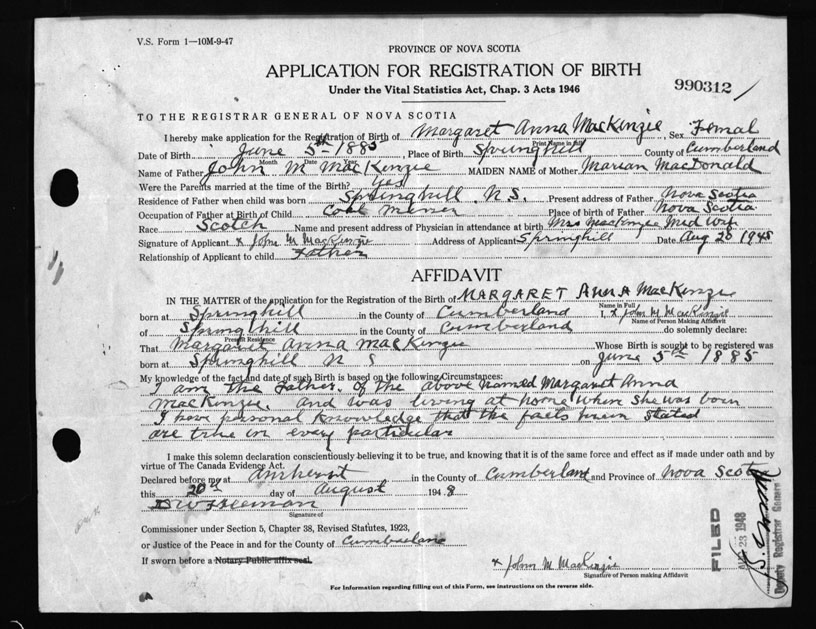 V.S. Form 1—10M-9-47
PROVINCE OF NOVA SCOTIA
APPLICATION FOR REGISTRATION OF BIRTH
Under the Vital Statistics Act, Chap. 3 Acts 1946
990312
TO THE REGISTRAR GENERAL OF NOVA SCOTIA
I hereby make application for the Registration of Birth of Margaret Anna MacKenzie, Sex Femal
Print Name in full
Date of Birth June 5th 1885, Place of Birth Springhill County of Cumberland
Month Date
Name of Father John M MacKenzie MAIDEN NAME of Mother Marian MacDonald
Were the Parents married at the time of the Birth? yes
Residence of Father when child was born Springhill N.S. Present address of Father Nova Scotia
Occupation of Father at Birth of Child Coal Miner Place of birth of Father Nova Scotia
Race Scotch Name and present address of Physician in attendance at birth Mrs MacKenzie Mid Wife
Signature of Applicant x John M MacKenzie Address of Applicant Springhill Date Aug 20 1948
Relationship of Applicant to child Father
AFFIDAVIT
IN THE MATTER of the application for the Registration of the Birth of MARGARET AnnA MacKenzie
Name in Full
born at Springhill in the County of Cumberland I, x John M MacKenzie
Name of Person Making Affidavit
of Springhill in the County of Cumberland do solemnly declare:
Present Residence
That Margaret Anna MacKenzie Whose Birth is sought to be registered was
born at Springhill N S on June 5th 1885
My knowledge of the fact and date of such Birth is based on the following Circumstances:
I am the Father of the above named Margaret Anna
MacKenzie. and was living at home when she was born
I have personal knowledge that the facts herein stated
are true in every particular
I make this solemn declaration conscientiously believing it to be true, and knowing that it is of the same force and effect as if made under oath and by
virtue of The Canada Evidence Act.
Declared before me at Amherst in the County of Cumberland and Province of Nova Scotia
this 20th day of August 1948
Signature of
Commissioner under Section 5, Chapter 38, Revised Statutes, 1923,
or Justice of the Peace in and for the County of Cumberland
If sworn before a Notary Public affix seal.
x John M MacKenzie
Signature of Person making Affidavit
FILED
23 1948
Deputy Registrar General
For Information regarding filling out of this Form, see instructions on the reverse side.